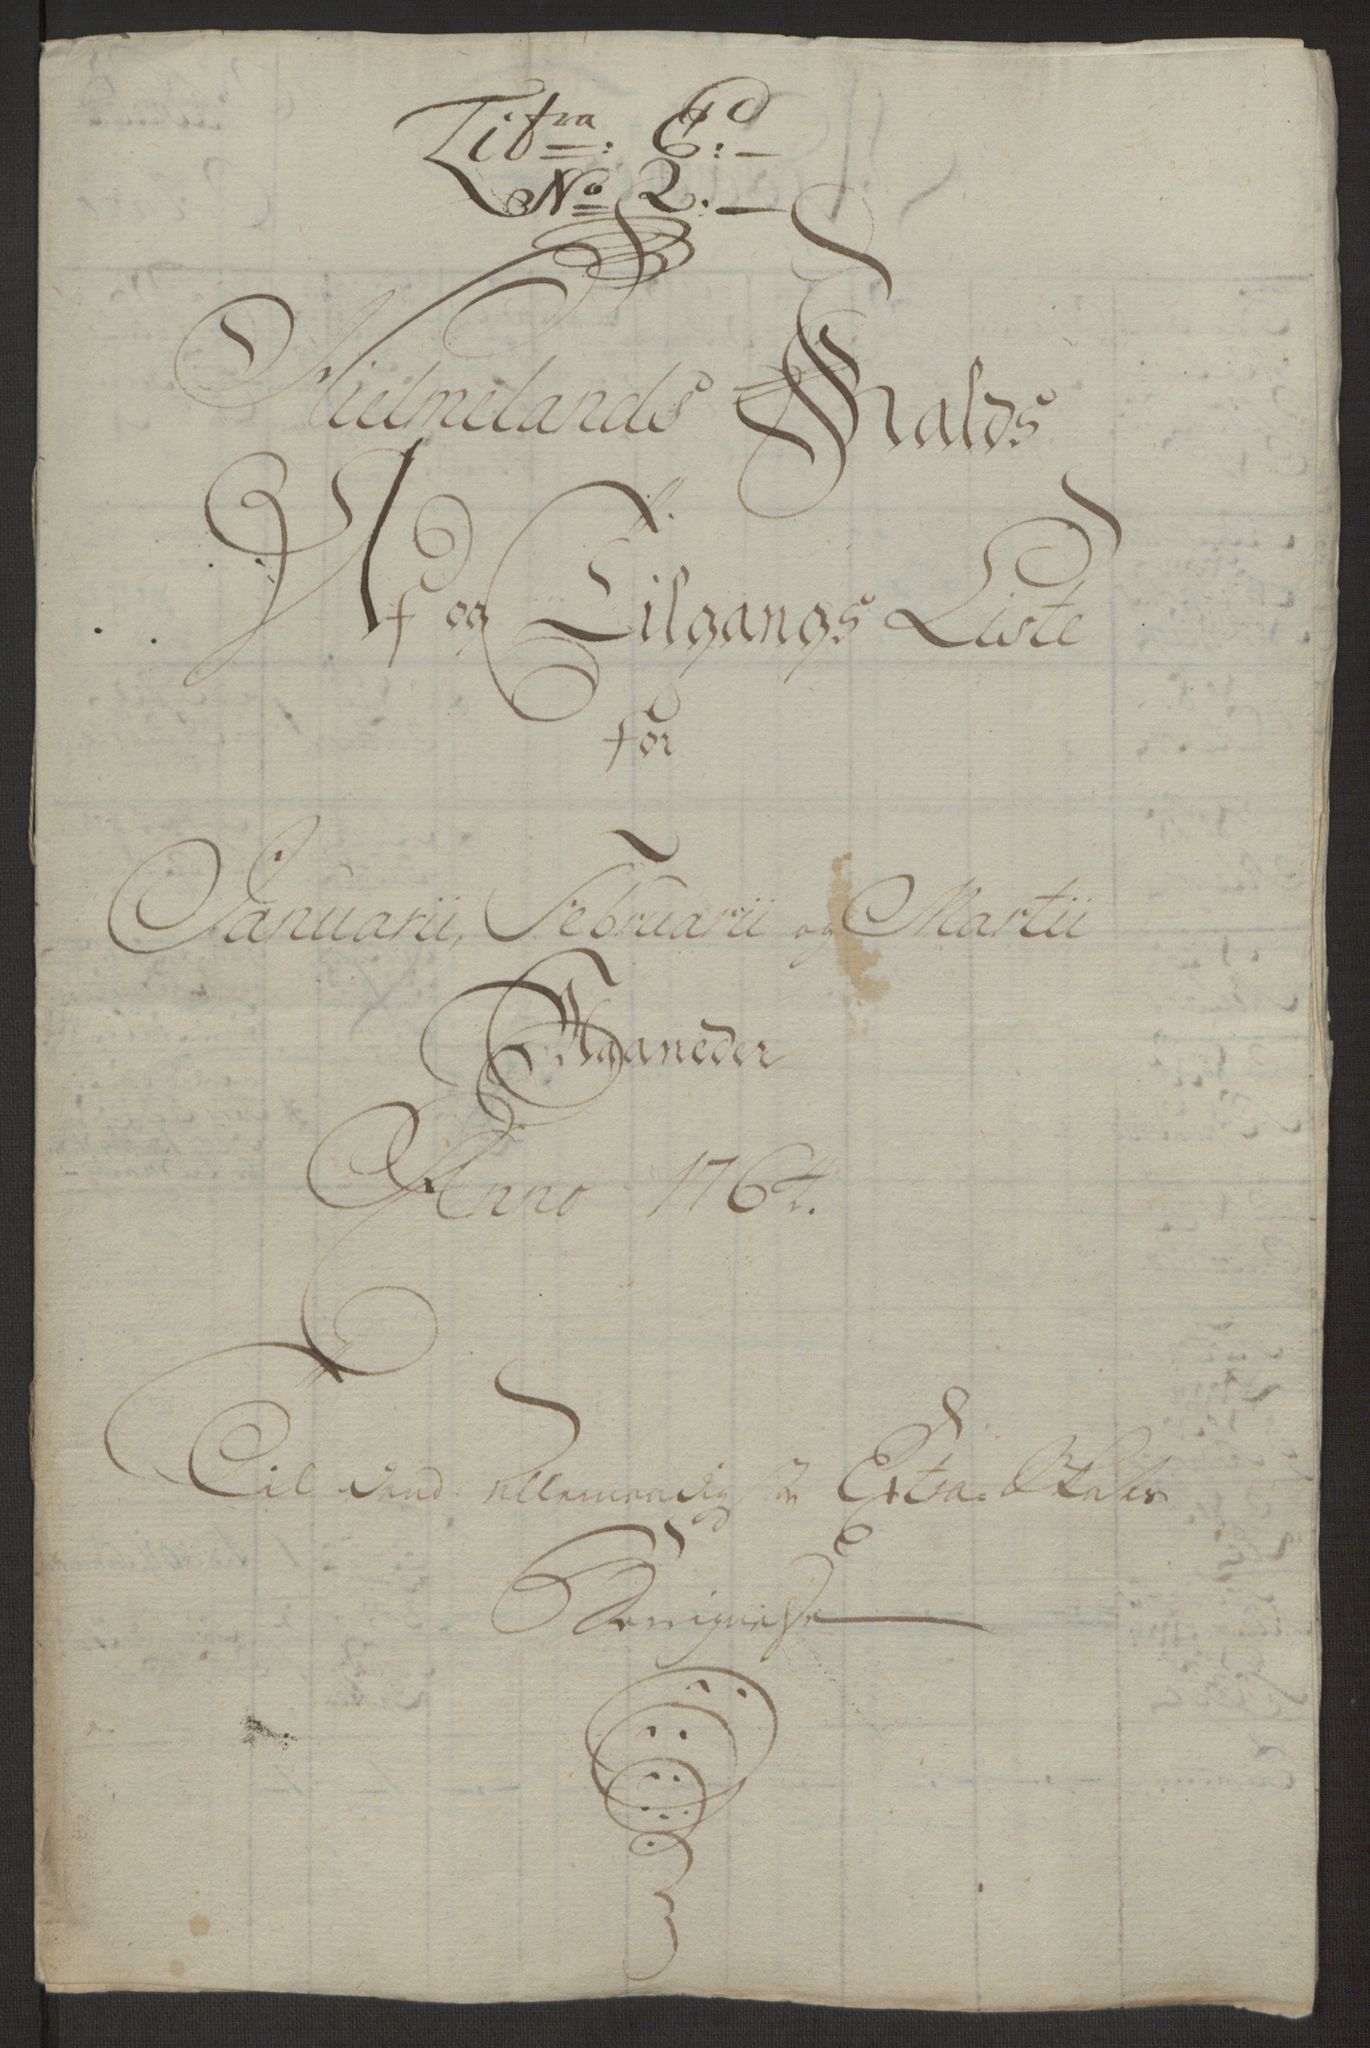 Litra: C:
No 2.
Hielmelands Gialds
Af og Tilgangs Liste
for
Januarii, Februarii og Martii
Maaneder
Anno 1764.
Til dend allernaadigste Extra Skats